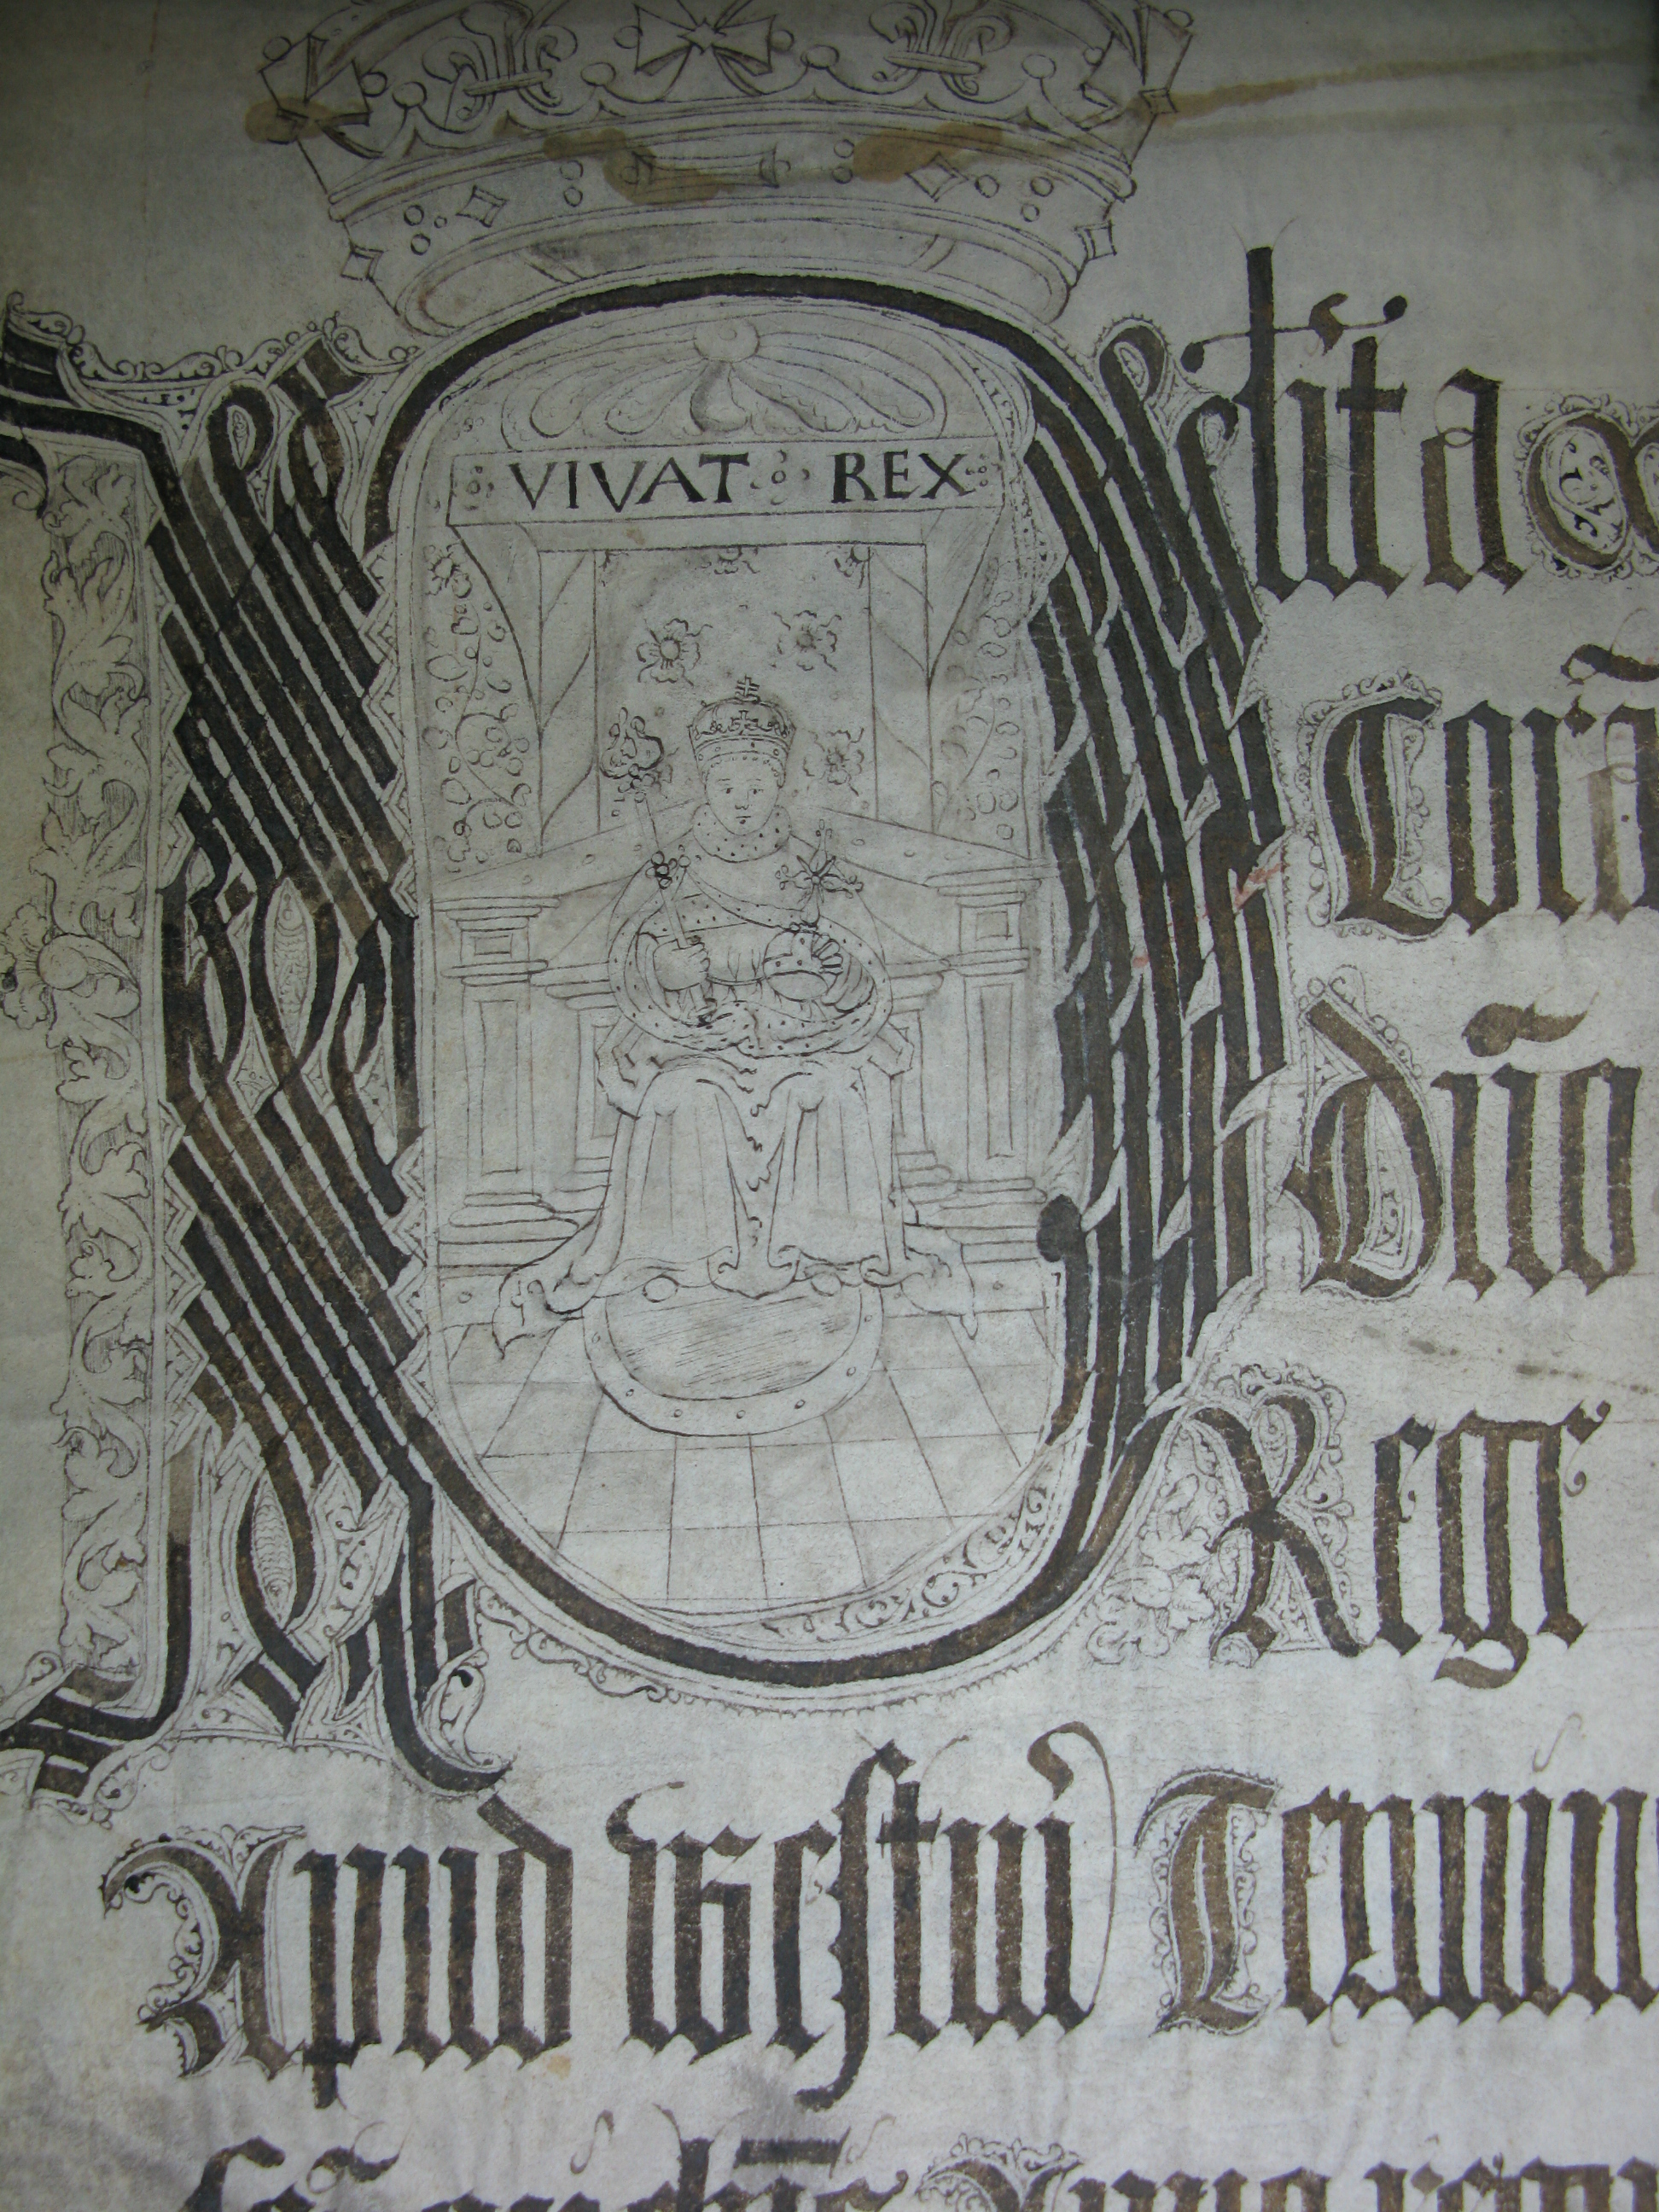 VIVAT REX
Placita
Corā
Dño
Rege
Apud Westm̃ Termin